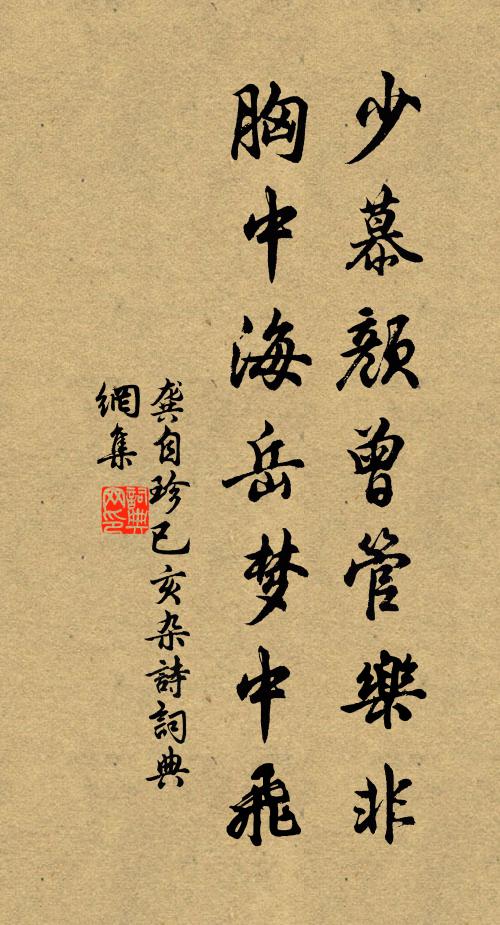 少慕顏曾管樂非
胸中海岳梦中飛
龚自珍已亥杂詩詞典
網集
詞典
网印